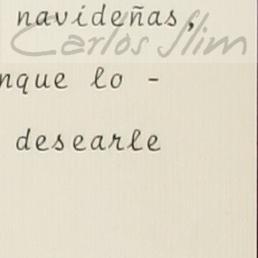 navideñas,
Carlos Slim
nque lo -
desearle